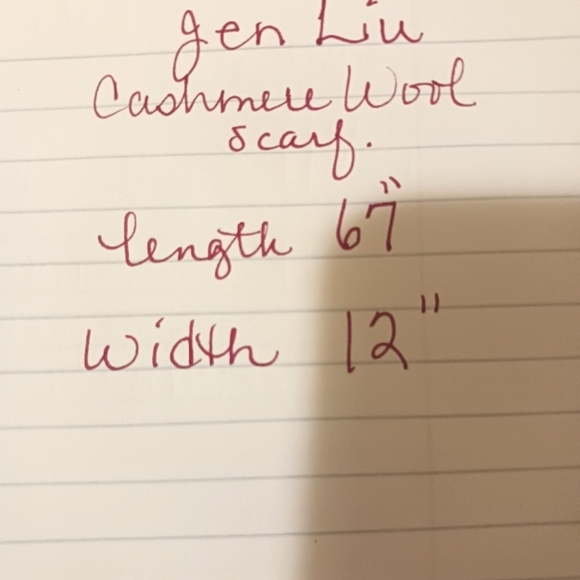 Jen Liu
Cashmere Wool
scarf.
length 67"
Width 12"